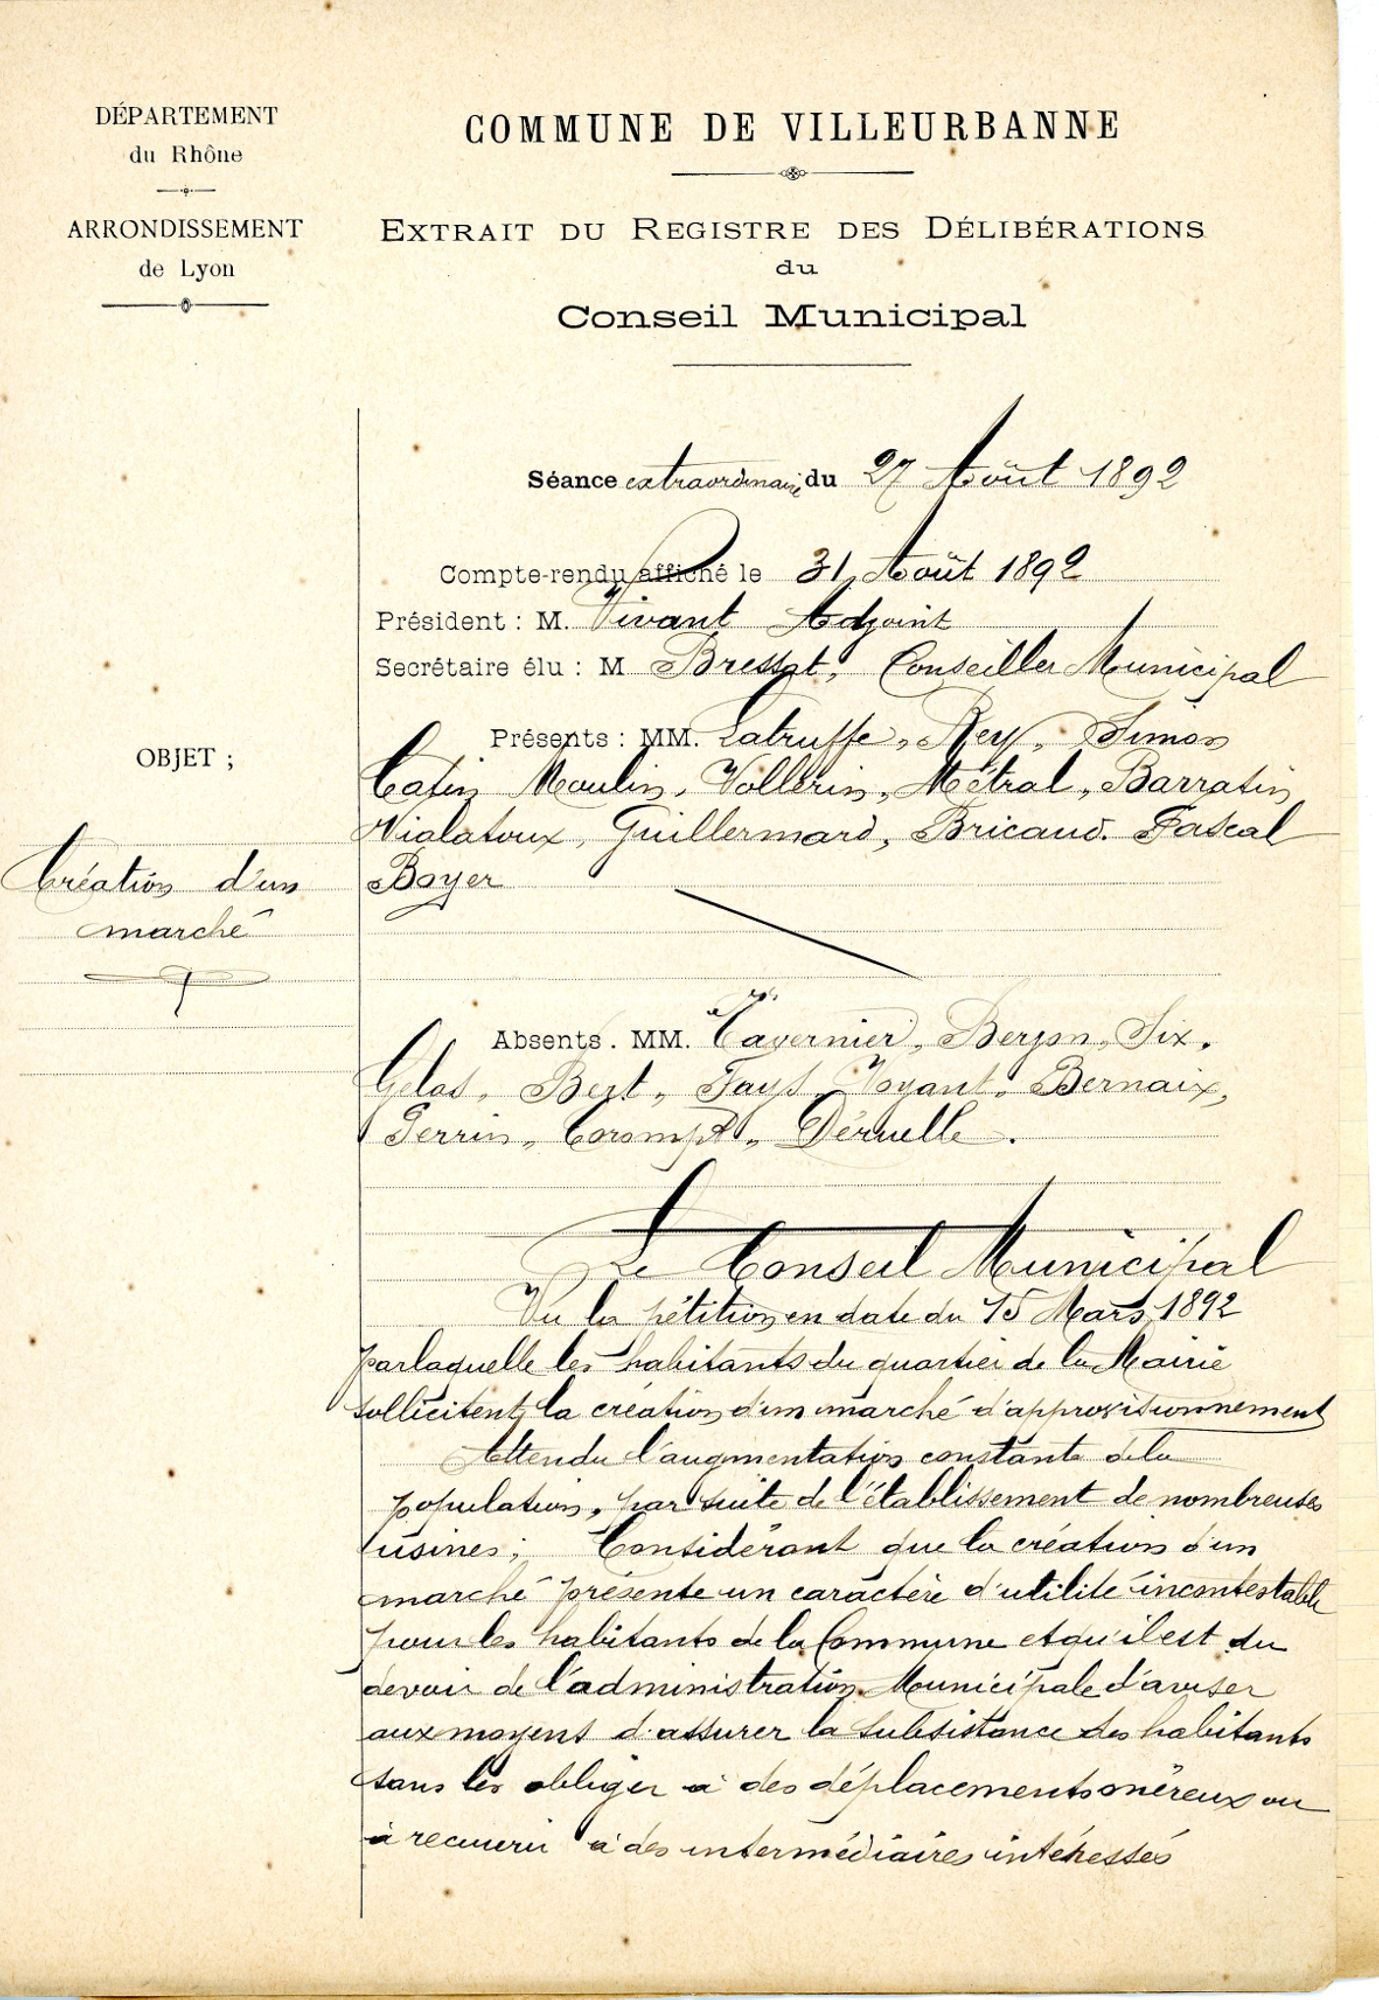 DÉPARTEMENT
du Rhône
ARRONDISSEMENT
de Lyon
COMMUNE DE VILLEURBANNE
EXTRAIT DU REGISTRE DES DÉLIBÉRATIONS
du
Conseil Municipal
Séance extraordinaire du 27 Août 1892
Compte-rendu affiché le 31 Août 1892
Président : M. Vivant Adjoint
Secrétaire élu : M Bressat, Conseiller Municipal
OBJET ;
Création d'un
marché
Présents : MM. Latruffe, Rey, Simon
Catin Moulin, Vollerin, Métral, Barratin
Vialatoux, Guillermard, Bricaud. Pascal
Boyer
Absents. MM. Tavernier, Berjon, Six,
Gelas, Bert, Fays, Voyant, Bernaix,
Perrin, Corompt, Déruelle.
Le Conseil Municipal
Vu la pétition en date du 15 Mars 1892
par laquelle les habitants du quartier de la Mairie
sollicitent la création d'un marché d'approvisionnement
Attendu l'augmentation constante de la
population, par suite de l'établissement de nombreuses
usines ; Considérant que la création d'un
marché présente un caractère d'utilité incontestable
pour les habitants de la Commune et qu'il est du
devoir de l'administration Municipale d'aviser
aux moyens d'assurer la subsistance des habitants
sans les obliger à des déplacements onéreux ou
à recourir à des intermédiaires intéressés